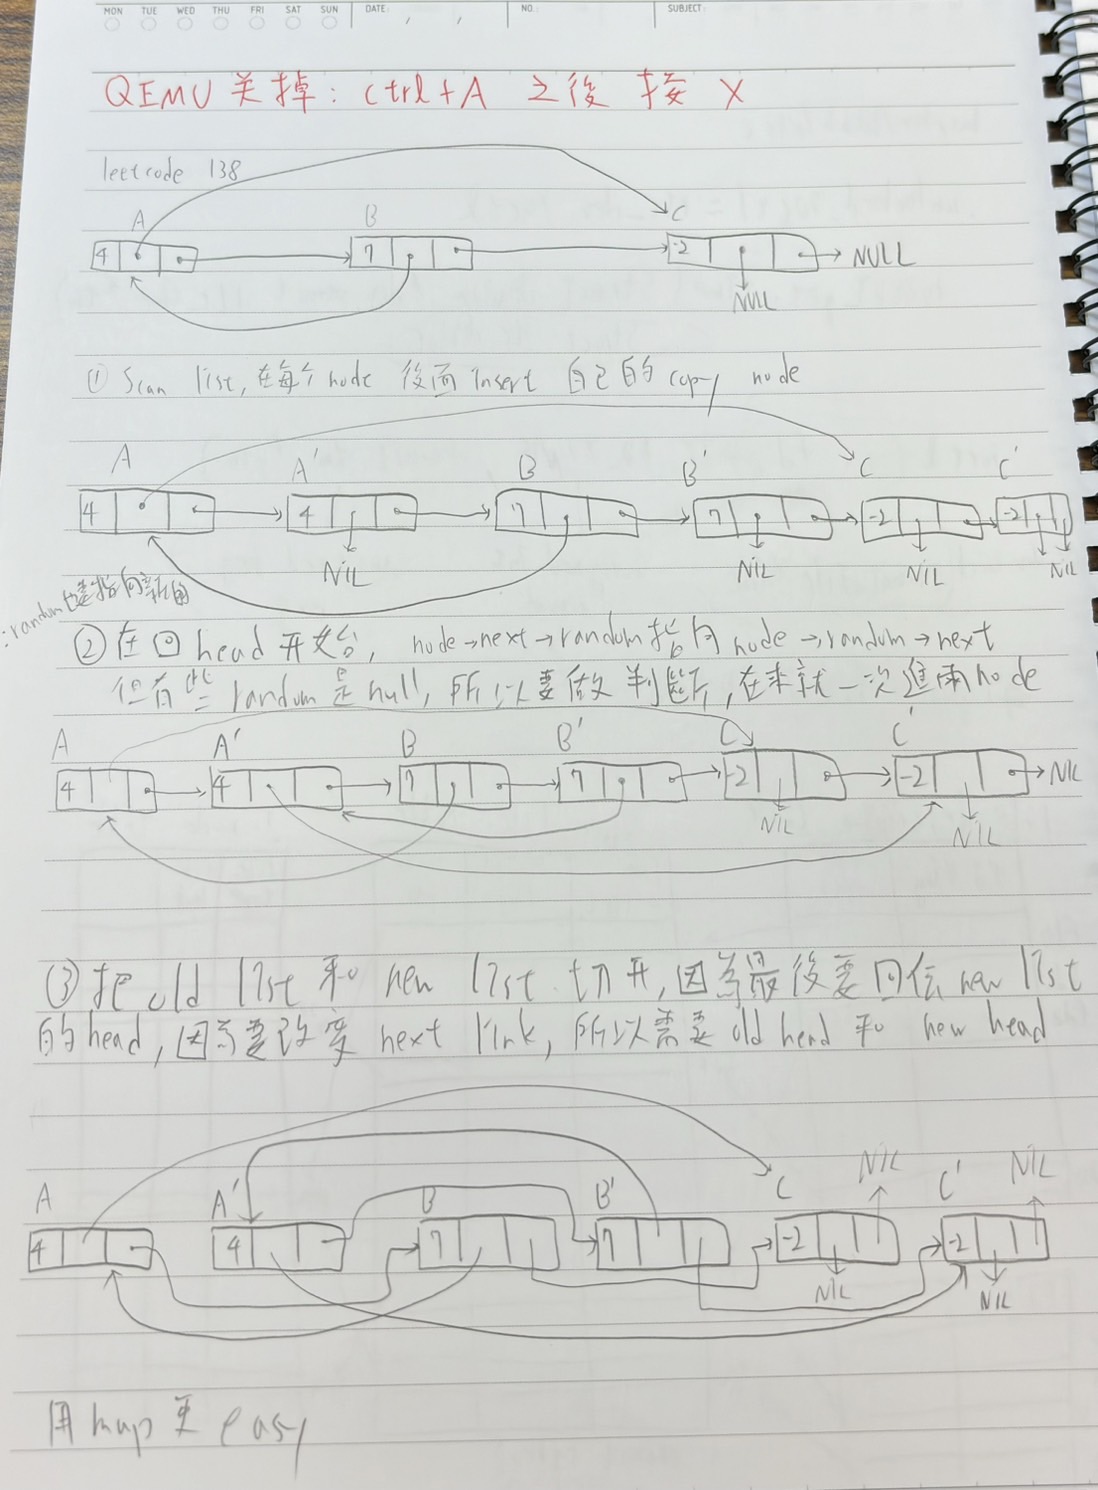 MON TUE WED THU FRI SAT SUN DATE: , , NO.: SUBJECT:
QEMU 关掉: ctrl+A 之後 按 X
leetcode 138
A B C
4 7 -2 NULL
NULL
① Scan list, 在每个 node 後面 insert 自己的 copy node
A A' B B' C C'
4 4 7 7 -2 -2
NIL NIL NIL NIL
:random 也要指向新的
② 在回 head 开始, node→next→random 指向 node→random→next
但有些 random 是 null, 所以要做判斷, 在來就一次進兩 node
A A' B B' C C'
4 4 7 7 -2 -2 NIL
NIL NIL
③ 把 old list 和 new list 切开, 因為最後要回传 new list
的 head, 因為要改变 next link, 所以需要 old head 和 new head
NIL NIL
A A' B B' C C'
4 4 7 7 -2 -2
NIL NIL
用 map 更 easy